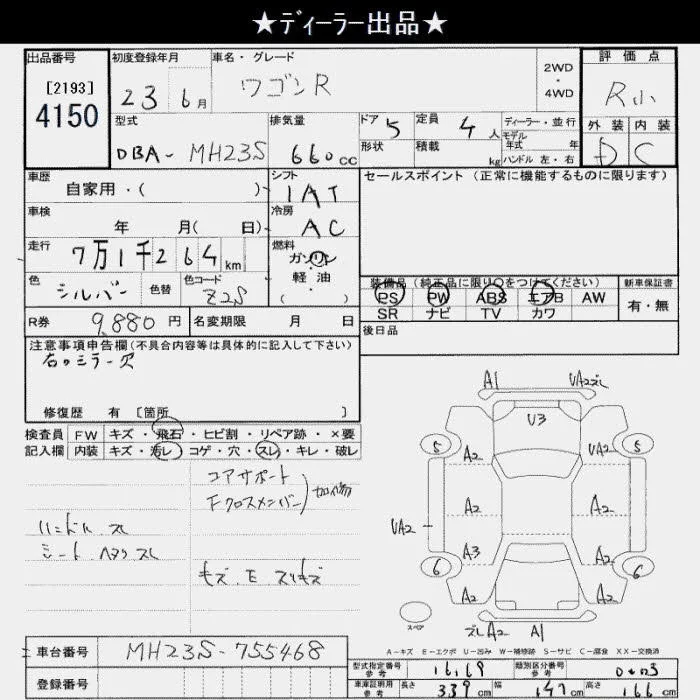 ★ディーラー出品★
出品番号
[2193]
4150
初度登録年月
23 6月
車名・グレード
ワゴンR
2WD
・
4WD
評価点
R小
外装 内装
D C
型式
DBA-MH23S
排気量
660cc
ドア 5
形状
定員 4人
積載 kg
ディーラー・並行
モデル
年式 年
ハンドル 左・右
車歴
自家用・( )
シフト
IAT
車検
年 月( 日)
冷房
AC
走行
7万1千264km
燃料
ガソリン
・
軽油
・
( )
色
シルバー
色替
色コード
Z2S
セールスポイント(正常に機能するものに限ります)
装備品(純正品に限り○をつけてください)
PS PW ABS エアB AW
SR ナビ TV カワ
新車保証書
有・無
R券 9,880円
名変期限 月 日
後日品
注意事項申告欄(不具合内容等は具体的に記入して下さい)
右のミラー欠
修復歴 有 [箇所 ]
検査員
記入欄
FW キズ・飛石・ヒビ割・リペア跡・×要
内装 キズ・汚レ・コゲ・穴・スレ・キレ・破レ
コアサポート
Fクロスメンバー
加修
ハンドル スレ
シート ヘタリ スレ
キズ、E、スリキズ
A1
UA2ズレ
U3
5
5
A2
UA2
A2
A2
UA2
A3
A2
6
6
A2
A2
スペア
ズレA2
A1
A-キズ E-エクボ U-凹み W-補修跡 S-サビ C-腐食 XX-交換済
車台番号 MH23S-755468
登録番号
型式指定番号
参考
16169
類別区分番号
参考
0003
車庫証明用
参考
長さ 339cm
幅 147cm
高さ 166cm